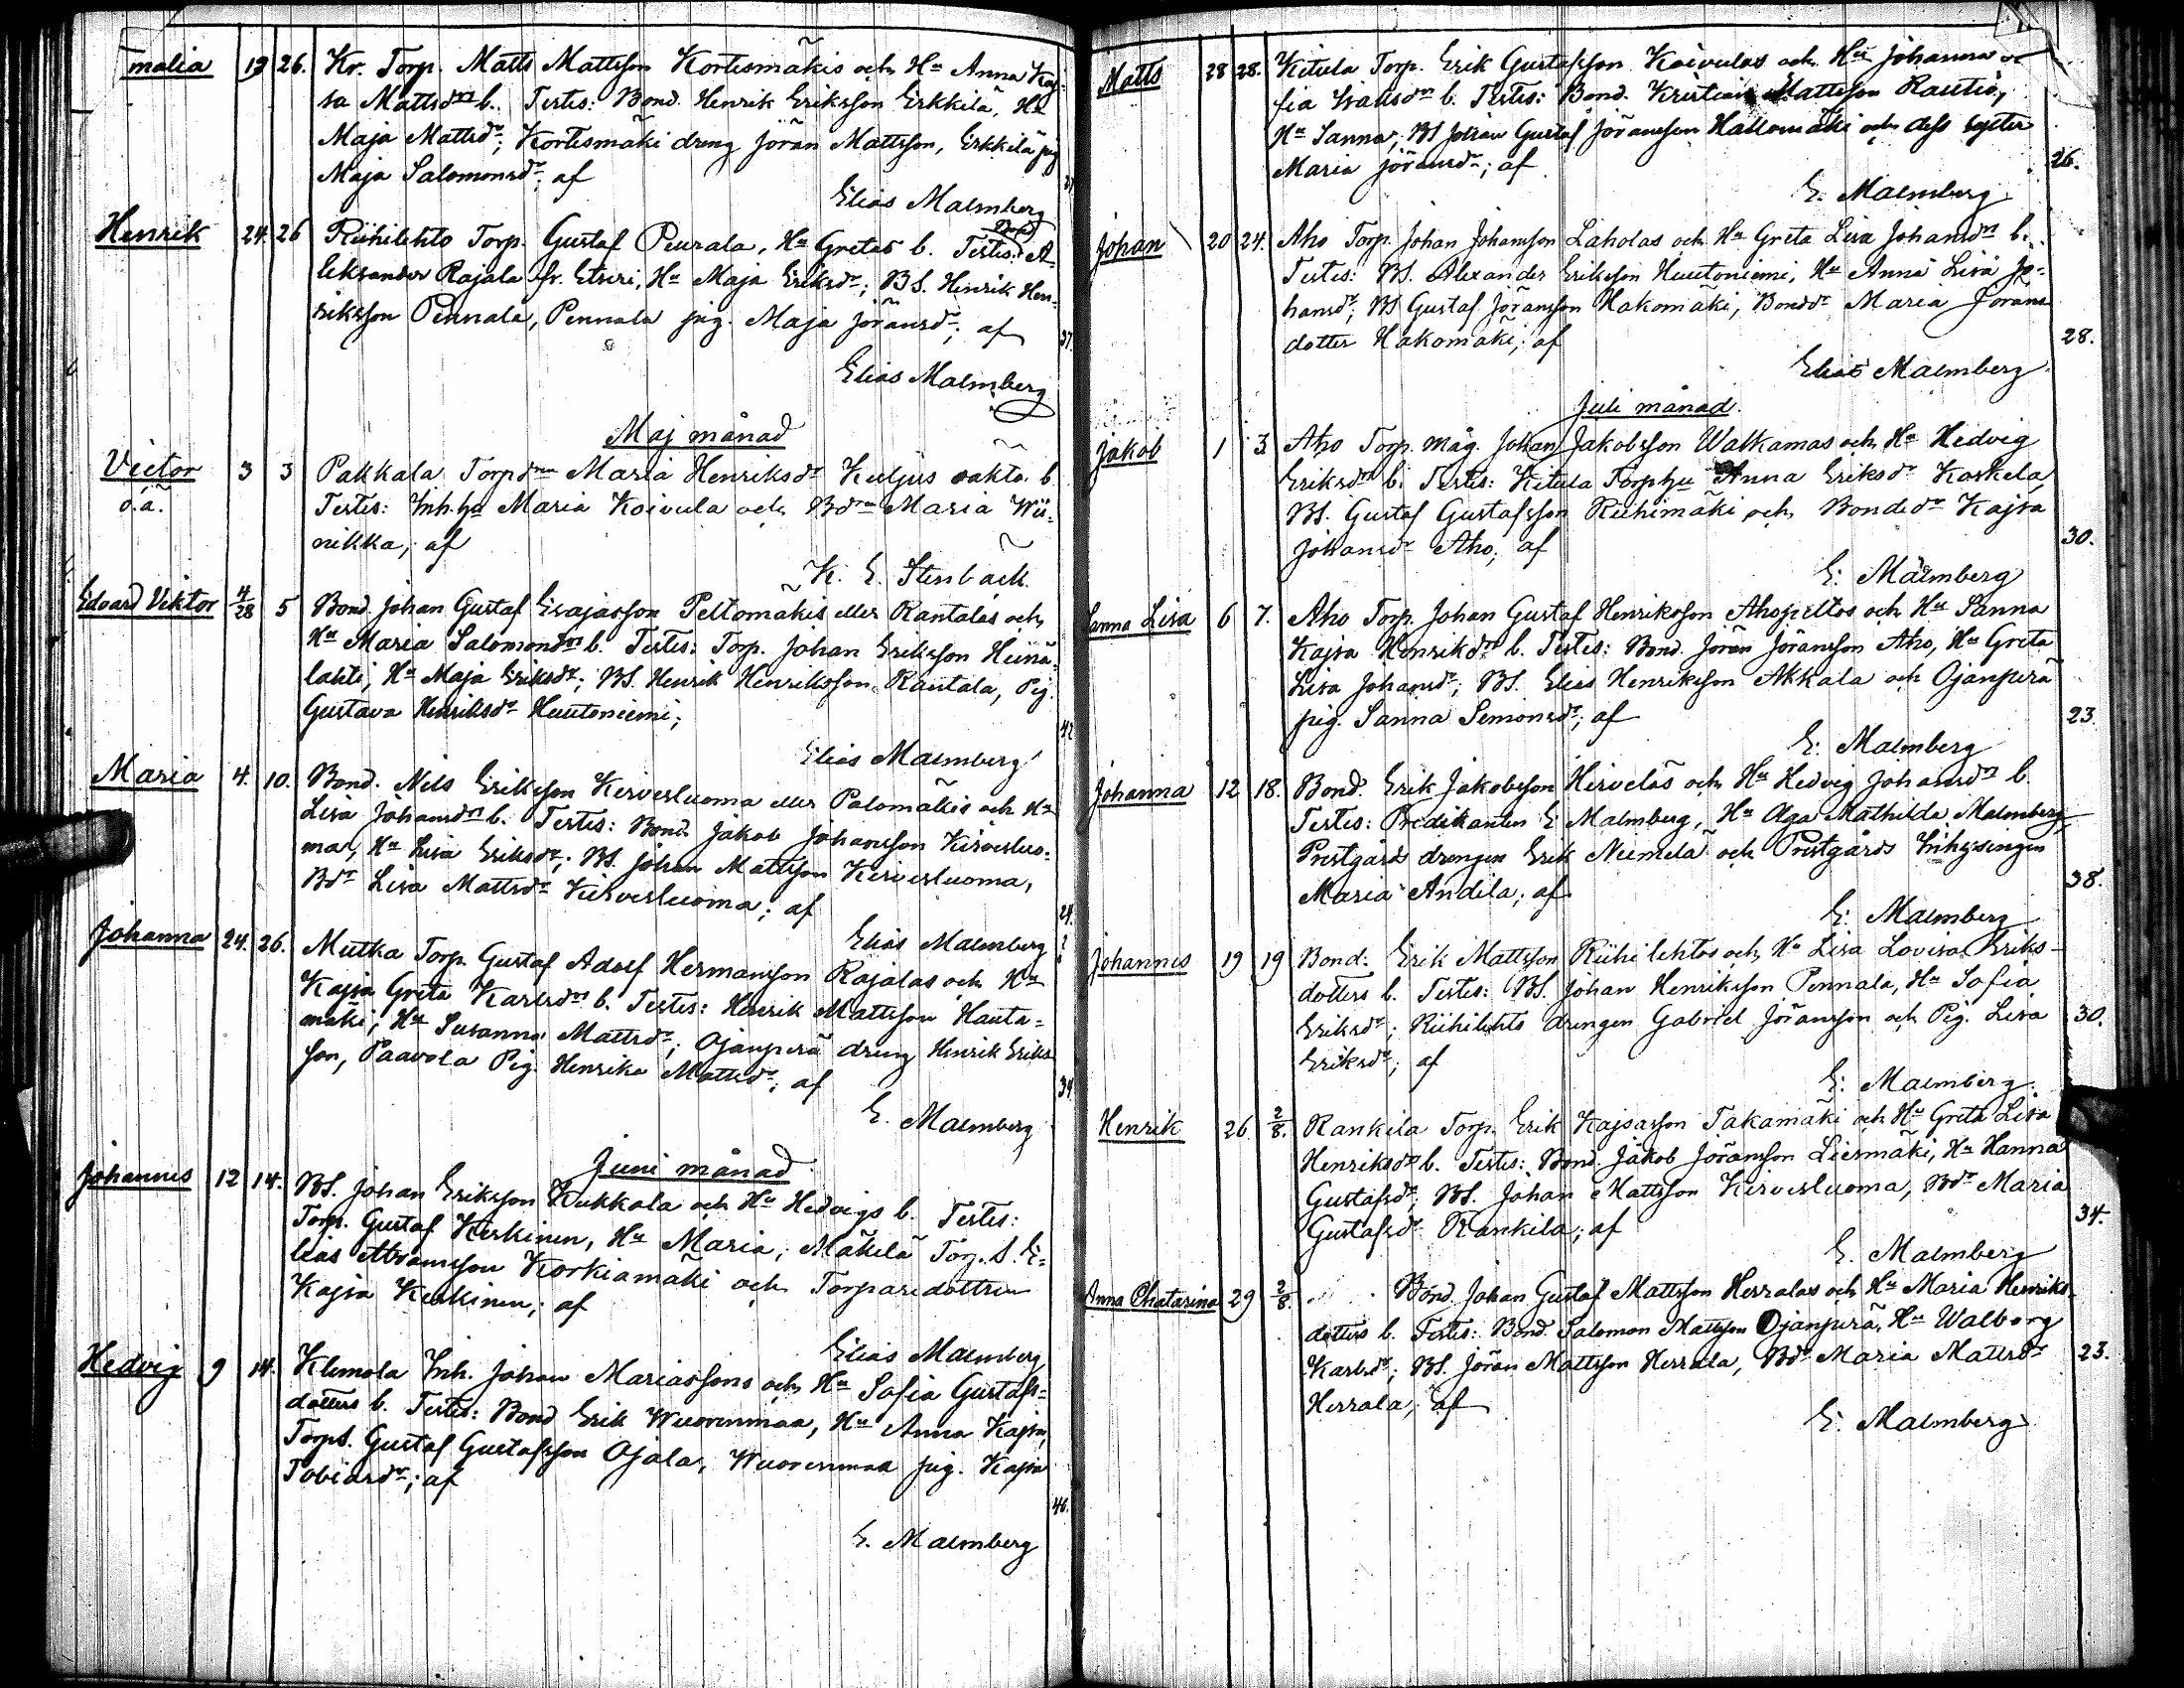 malia 19 26. Kr. Torp. Matts Mattsson Kortesmäkis och Hu Anna Kaj-
sa Mattsdrs b. Testes: Bond. Henrik Eriksson Erkkilä, Hu
Maja Mattsdr; Kortesmäki dreng Jöran Mattsson, Erkkilä pig
Maja Salomonsdr; af
Elias Malmberg
Henrik 24. 26 Riihilehto Torp. Gustaf Peurala, Hu Gretas b. Testes: A-
leksander Rajala fr. Etseri, Hu Maja Eriksdr; BS. Henrik Hen-
riksson Pennala, Pennala pig. Maja Jöransdr; af
37.
Elias Malmberg
Maj månad
Victor 3 3 Pakkala Torpdrn Maria Henriksdr Kuljus oäkta b.
o.ä. Testes: Inh. hu Maria Koivula och Bdrn Maria Wii-
nikka; af
K. E. Stenbäck
Edvard Viktor 4/28 5 Bond. Johan Gustaf Esajasson Peltomäkis eller Rantalas och
Hu Maria Salomondrs b. Testes: Torp. Johan Eriksson Heinä-
lahti, Hu Maja Eriksdr; BS. Henrik Henriksson Rantala, Pig.
Gustava Henriksdr Huutoniemi;
42
Elias Malmberg
Maria 4. 10. Bond. Nils Eriksson Kirvesluoma eller Palomäkis och Hu
Lisa Johansdrs b. Testes: Bond. Jakob Johansson Kirvesluo-
ma, Hu Lisa Eriksdr; BS. Johan Mattsson Kirvesluoma,
Bdr Lisa Mattsdr Kirvesluoma; af
24.
Elias Malmberg
Johanna 24. 26. Mutka Torp. Gustaf Adolf Hermansson Rajalas och Hu
Kajsa Greta Karlsdrs b. Testes: Henrik Mattsson Hauta-
mäki, Hu Susanna Mattsdr; Ojanperä dreng Henrik Eriks-
son, Paavola Pig. Henrika Mattsdr; af
34
E. Malmberg
Juni månad
Johannes 12 14. BS. Johan Eriksson Kukkala och Hu Hedvigs b. Testes:
Torp. Gustaf Kerkinen, Hu Maria; Mäkelä Torp. S. E-
lias Abramsson Korkiamäki och Torparedottren
Kajsa Kerkinen; af
Elias Malmberg
Hedvig 9 14. Klemola Inh. Johan Mariassons och Hu Sofia Gustafs-
dotters b. Testes: Bond Erik Wuorenmaa, Hu Anna Kajsa,
TorpS. Gustaf Gustafsson Ojala, Wuorenmaa pig. Kajsa
Tobiasdr; af
46.
E. Malmberg
Matts 28 28. Kitula Torp. Erik Gustafsson Koivulas och Hu Johanna So-
fia Isaksdrs b. Testes: Bond. Kristian Mattsson Rautio,
Hu Sanna, BS Johan Gustaf Jöransson Hakomäki och dess syster
Maria Jöransdr; af
26.
E. Malmberg
Johan 20 24. Aho Torp. Johan Johansson Laholas och Hu Greta Lisa Johansdrs b.
Testes: BS. Alexander Eriksson Huutoniemi, Hu Anna Lisa Jo-
hansdr; BS Gustaf Jöransson Hakomäki, Bonddr Maria Jörans
dotter Hakomäki; af
28.
Elias Malmberg
Juli månad.
Jakob 1 3 Aho Torp. måg. Johan Jakobsson Walkamas och Hu Hedvig
Eriksdrs b. Testes: Kitula Torphu Anna Eriksdr Koskela,
BS. Gustaf Gustafsson Riihimäki och Bondedr Kajsa
Johansdr Aho; af
30.
E. Malmberg
Sanna Lisa 6 7. Aho Torp. Johan Gustaf Henriksson Ahopeltos och Hu Sanna
Kajsa Henriksdrs b. Testes: Bond. Jöran Jöransson Aho, Hu Greta
Lisa Johansdr; BS. Elias Henriksson Akkala och Ojanperä
pig. Sanna Semonsdr; af
23.
E. Malmberg
Johanna 12 18. Bond. Erik Jakobsson Hirveläs och Hu Hedvig Johansdrs b.
Testes: Predikanten E. Malmberg, Hu Olga Mathilda Malmberg,
Prestgårds drengen Erik Niemelä och Prestgårds Inhysingen
Maria Andila; af
38.
E. Malmberg
Johannes 19 19 Bond. Erik Mattsson Riihilehtos och Hu Lisa Lovisa Eriks-
dotters b. Testes: BS. Johan Henriksson Pennala, Hu Sofia
Eriksdr; Riihilehto drengen Gabriel Jöransson och Pig. Lisa
Eriksdr; af
30.
E. Malmberg.
Henrik 26 2/8. Rankila Torp. Erik Kajsasson Takamäki och Hu Greta Lisa
Henriksdrs b. Testes: Bond. Jakob Jöransson Liesmäki, Hu Hanna
Gustafsdr; BS. Johan Mattsson Kirvesluoma, Bdr Maria
Gustafsdr Rankila; af
34.
E. Malmberg
Anna Chatarina 29 2/8. Bond. Johan Gustaf Mattsson Herralas och Hu Maria Henriks-
dotters b. Testes: Bond. Salomon Mattsson Ojanperä, Hu Walborg
Karlsdr; BS. Jöran Mattsson Herrala, Bdr Maria Mattsdr
Herrala; af
23.
E. Malmberg